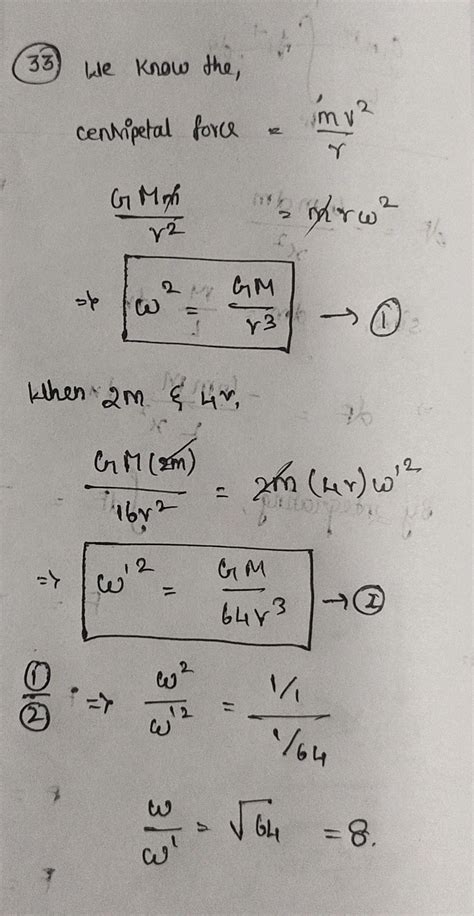 33 We know the,
centripetal force = mv²/r
GMm/r² = mrω²
⇒ ω² = GM/r³ → ①
When 2m & 4r,
GM(2m)/16r² = 2m(4r)ω'²
⇒ ω'² = GM/64r³ → ②
①/② ⇒ ω²/ω'² = 1/1 / 1/64
ω/ω' = √64 = 8.